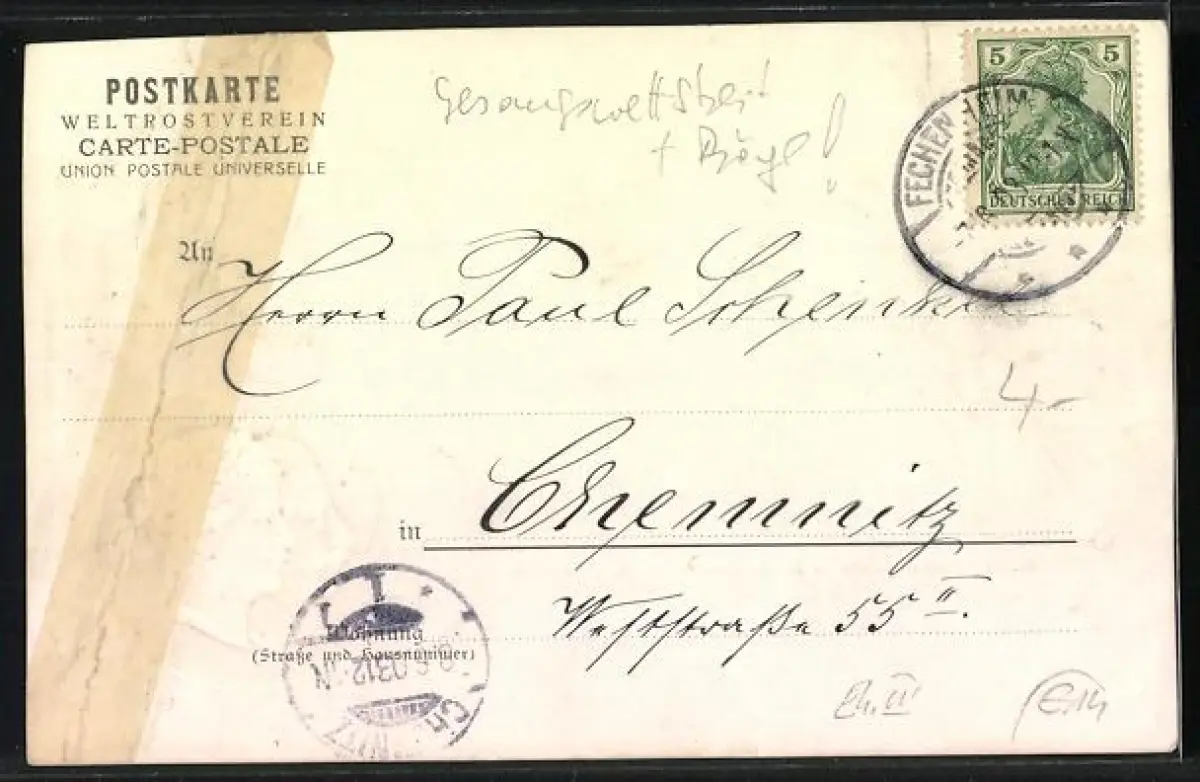 POSTKARTE
WELTPOSTVEREIN
CARTE-POSTALE
UNION POSTALE UNIVERSELLE
Gesangswettstreit
+
5 5
DEUTSCHES REICH
FECHENHEIM
An
Herrn Paul Schenke
4-
in Chemnitz
Weststraße 55 II.
Wohnung
(Straße und Hausnummer)